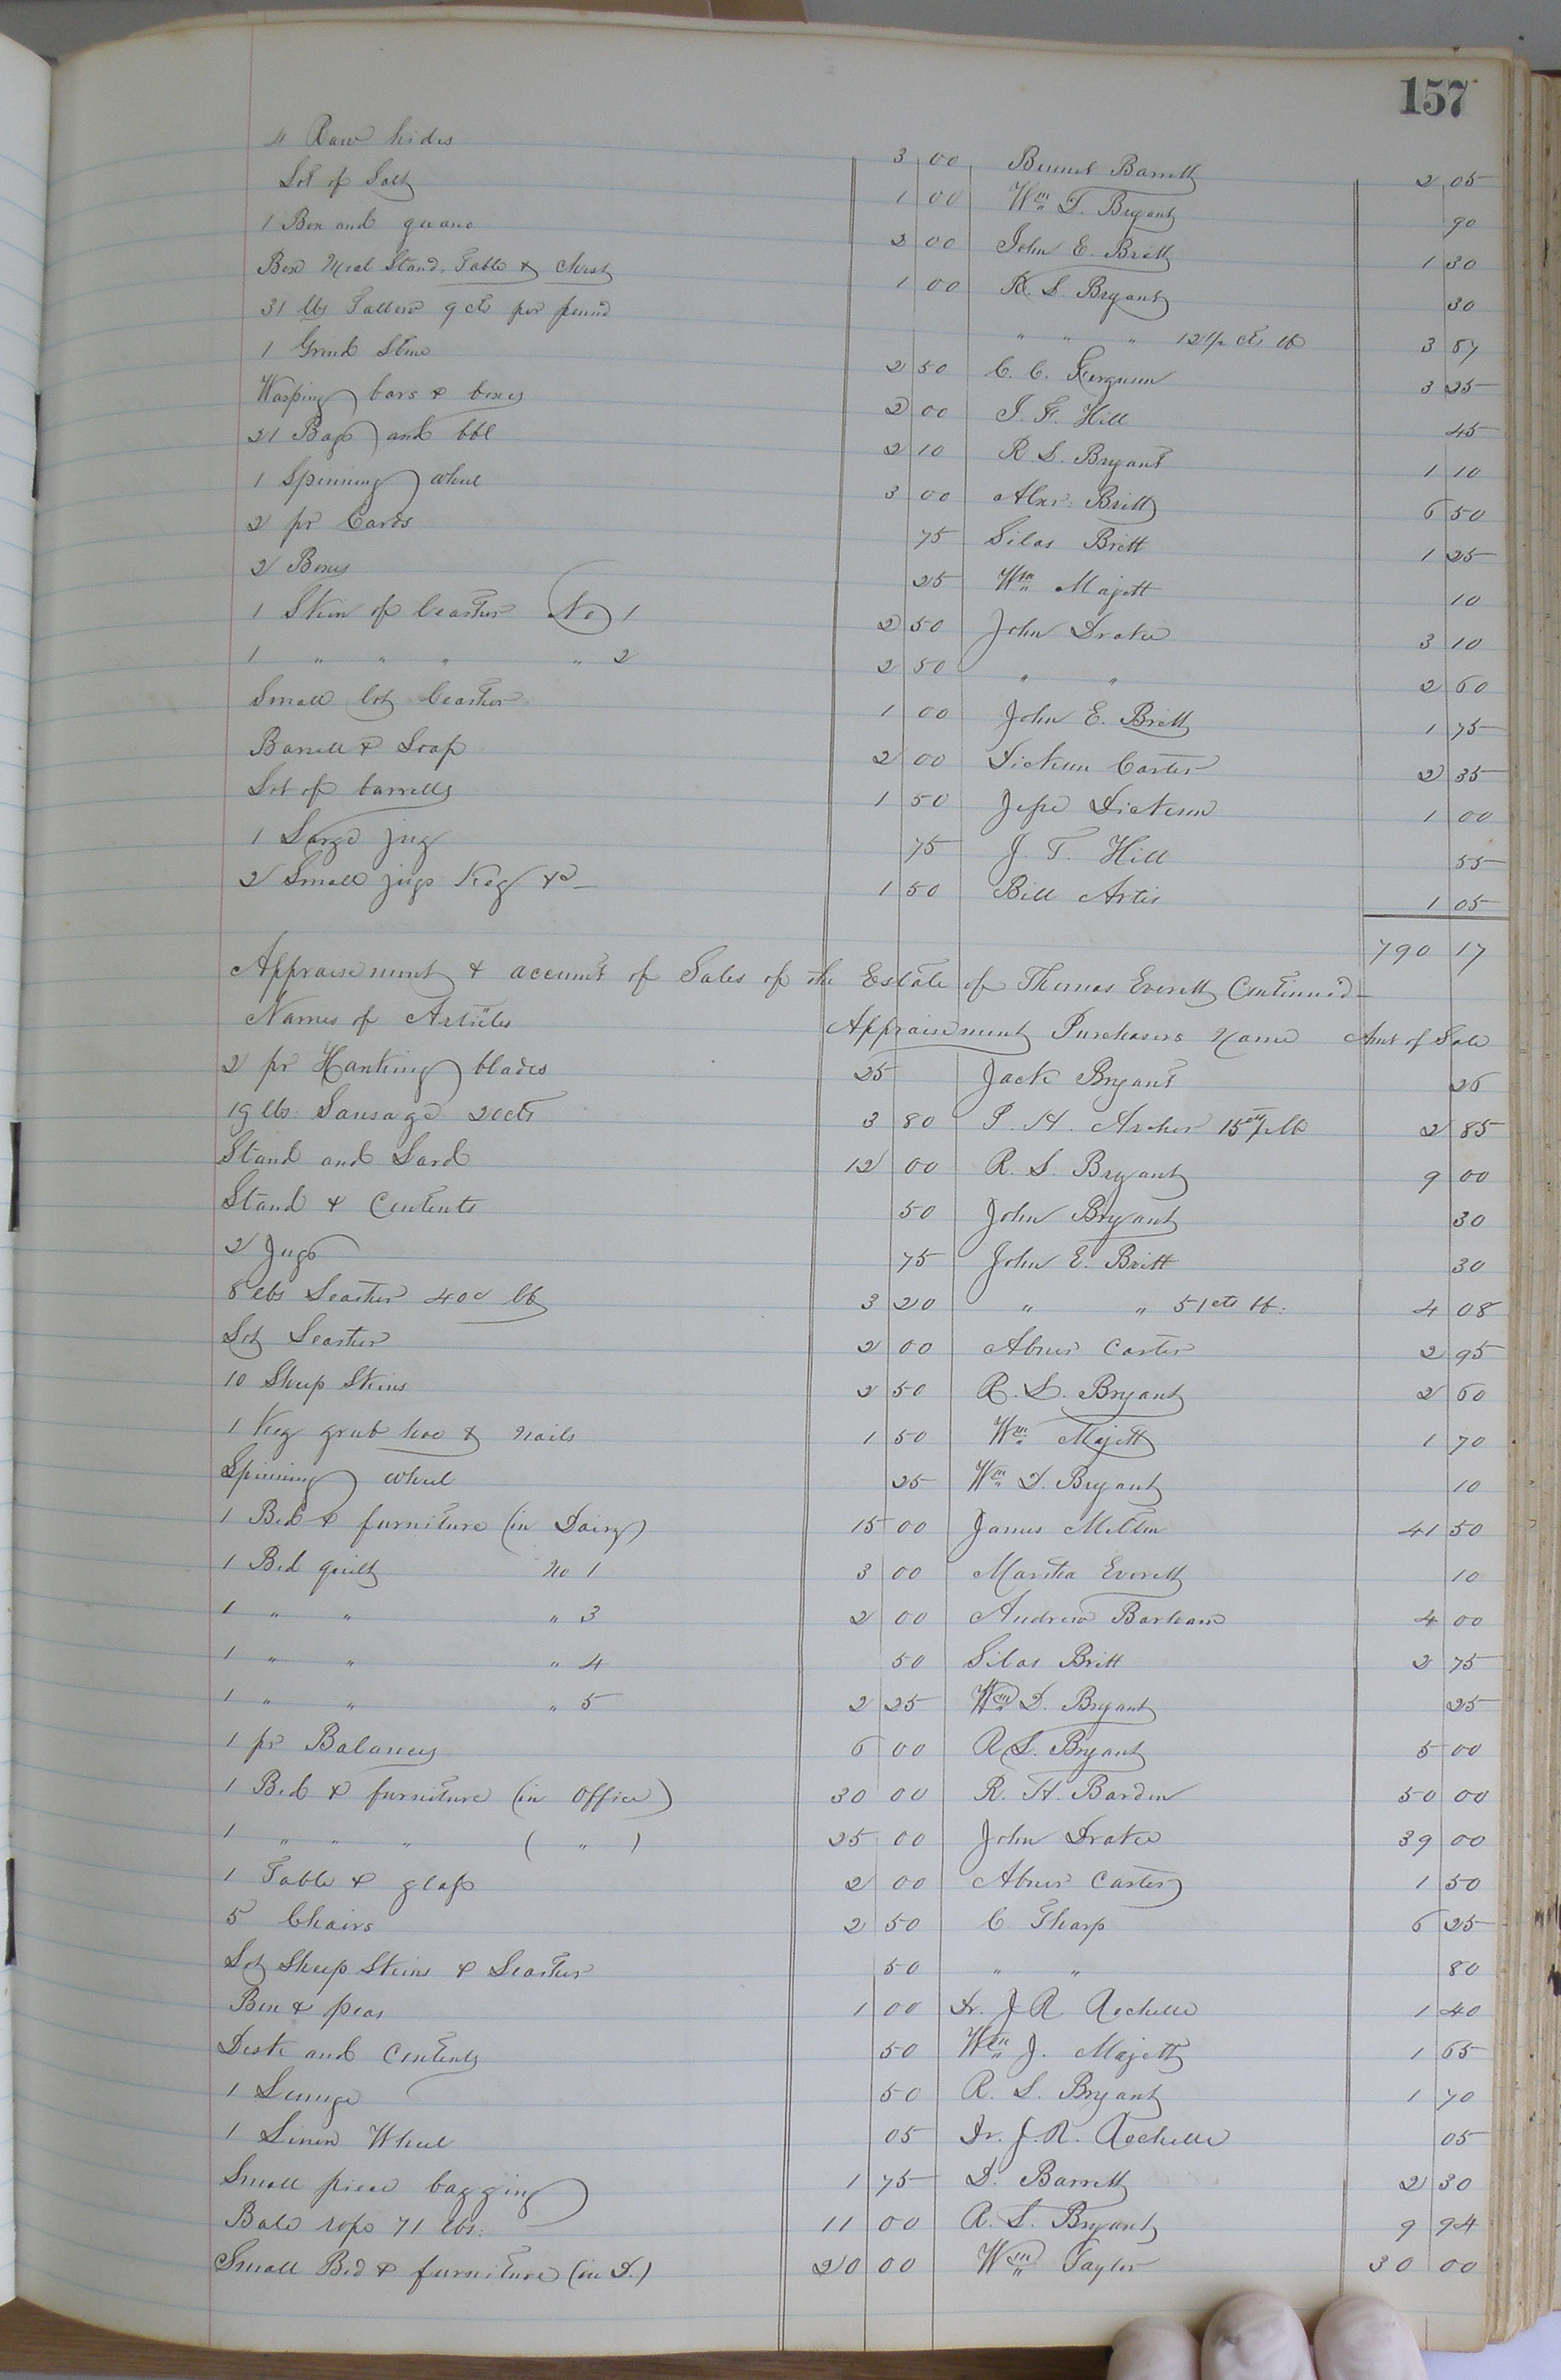 157
4 Raw hides 3 00 Bennet Barrett 2 05
Lot of Salt 1 00 Wm D. Bryant 90
1 Box and guano 2 00 John E. Britt 1 30
Box Meal Stand, Table & Chest 1 00 R. S. Bryant 30
31 lbs Tallow 9 cts per pound " " " 12½ cts lb 3 87
1 Grind Stone 2 50 C. C. Ferguson 3 25
Warping bars & boxes 2 00 J. F. Hill 45
21 Bags and bbl 2 10 R. S. Bryant 1 10
1 Spinning wheel 3 00 Alexr. Britt 6 50
2 pr Cards 75 Silas Britt 1 25
2 Boxes 25 Wm Majett 10
1 Skin of Leather No 1 2 50 John Drake 3 10
1 " " " " 2 2 50 " " 2 60
Small lot Leather 1 00 John E. Britt 1 75
Barrell & Soap 2 00 Dickson Carter 2 35
Lot of barrells 1 50 Jesse Dickson 1 00
1 Large jug 75 J. T. Hill 55
2 Small jugs Keg &c 1 50 Bill Artis 1 05
790 17
Appraisement & account of Sales of the Estate of Thomas Everett Continued
Names of Articles Appraisement Purchasers Name Amt of Sale
2 pr Hanking blades 25 Jack Bryant 26
19 lbs. Sausage 20cts 3 80 P. H. Archer 15cts p lb 2 85
Stand and Lard 12 00 R. S. Bryant 9 00
Stand & Contents 50 John Bryant 30
2 Jugs 75 John E. Britt 30
8 lbs Leather 40c lb 3 20 " " 51cts lb. 4 08
Lot Leather 2 00 Abner Carter 2 95
10 Sheep Skins 2 50 R. S. Bryant 2 60
1 Keg grub hoe & nails 1 50 Wm Majett 1 70
Spinning wheel 25 Wm D. Bryant 10
1 Bed & furniture (in Dairy) 15 00 James Melton 41 50
1 Bed quilt No 1 3 00 Martha Everett 10
1 " " " 3 2 00 Andrew Barham 4 00
1 " " " 4 50 Silas Britt 2 75
1 " " " 5 2 25 Wm D. Bryant 25
1 pr Balances 6 00 R. S. Bryant 5 00
1 Bed & furniture (in Office) 30 00 R. H. Barden 50 00
1 " " " ( " ) 25 00 John Drake 39 00
1 Table & glass 2 00 Abner Carter 1 50
5 Chairs 2 50 C. Tharp 6 25
Lot Sheep Skins & Leather 50 " " 80
Box & peas 1 00 Dr. J R Rochelle 1 40
Desk and Contents 50 Wm J. Majett 1 65
1 Lounge 50 R. S. Bryant 1 70
1 Linen Wheel 05 Dr. J. R. Rochelle 05
Small piece bagging 1 75 D. Barrett 2 30
Bale rope 71 lbs. 11 00 R. S. Bryant 9 94
Small Bed & furniture (in D.) 20 00 Wm Taylor 30 00